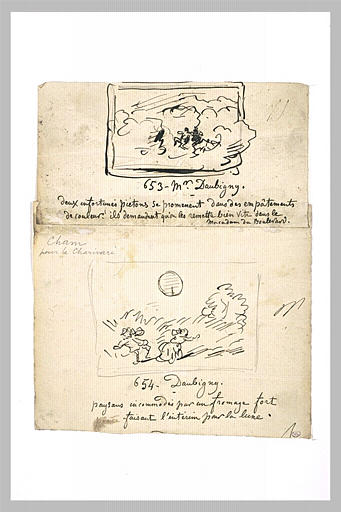 653 - Mr. Daubigny.
deux infortunés pietons se promenent dans des empâtements
de couleur. ils demandent qu'on les remette bien vite dans le
Macadam du Boulevard.
Cham
pour le Charivari
654 - Daubigny.
paysans incommodés par un fromage fort
faisant l'intérim pour la lune.